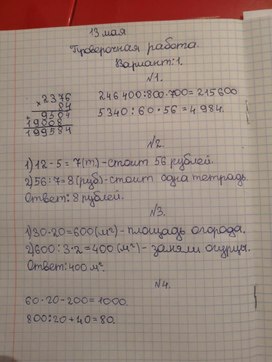 13 мая
Проверочная работа.
Вариант:1.
№1.
2376
× 84
246 400:800·700=215600
9504
5340:60·56=4984.
19008
199584
№2.
1) 12-5=7(т)-стоит 56 рублей.
2) 56:7=8(руб)-стоит одна тетрадь.
Ответ: 8 рублей.
№3.
1) 30·20=600(м²)-площадь огорода.
2) 600:3·2=400(м²)-заняли огурцы.
Ответ: 400 м².
№4.
60·20-200=1000.
800:20+40=80.